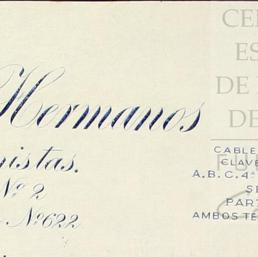 Hermanos
nistas.
Nº 2
Nº 622
CABLE
CLAVE
A.B.C. 4ª
SE
PART
AMBOS TE
CE
ES
DE
DE